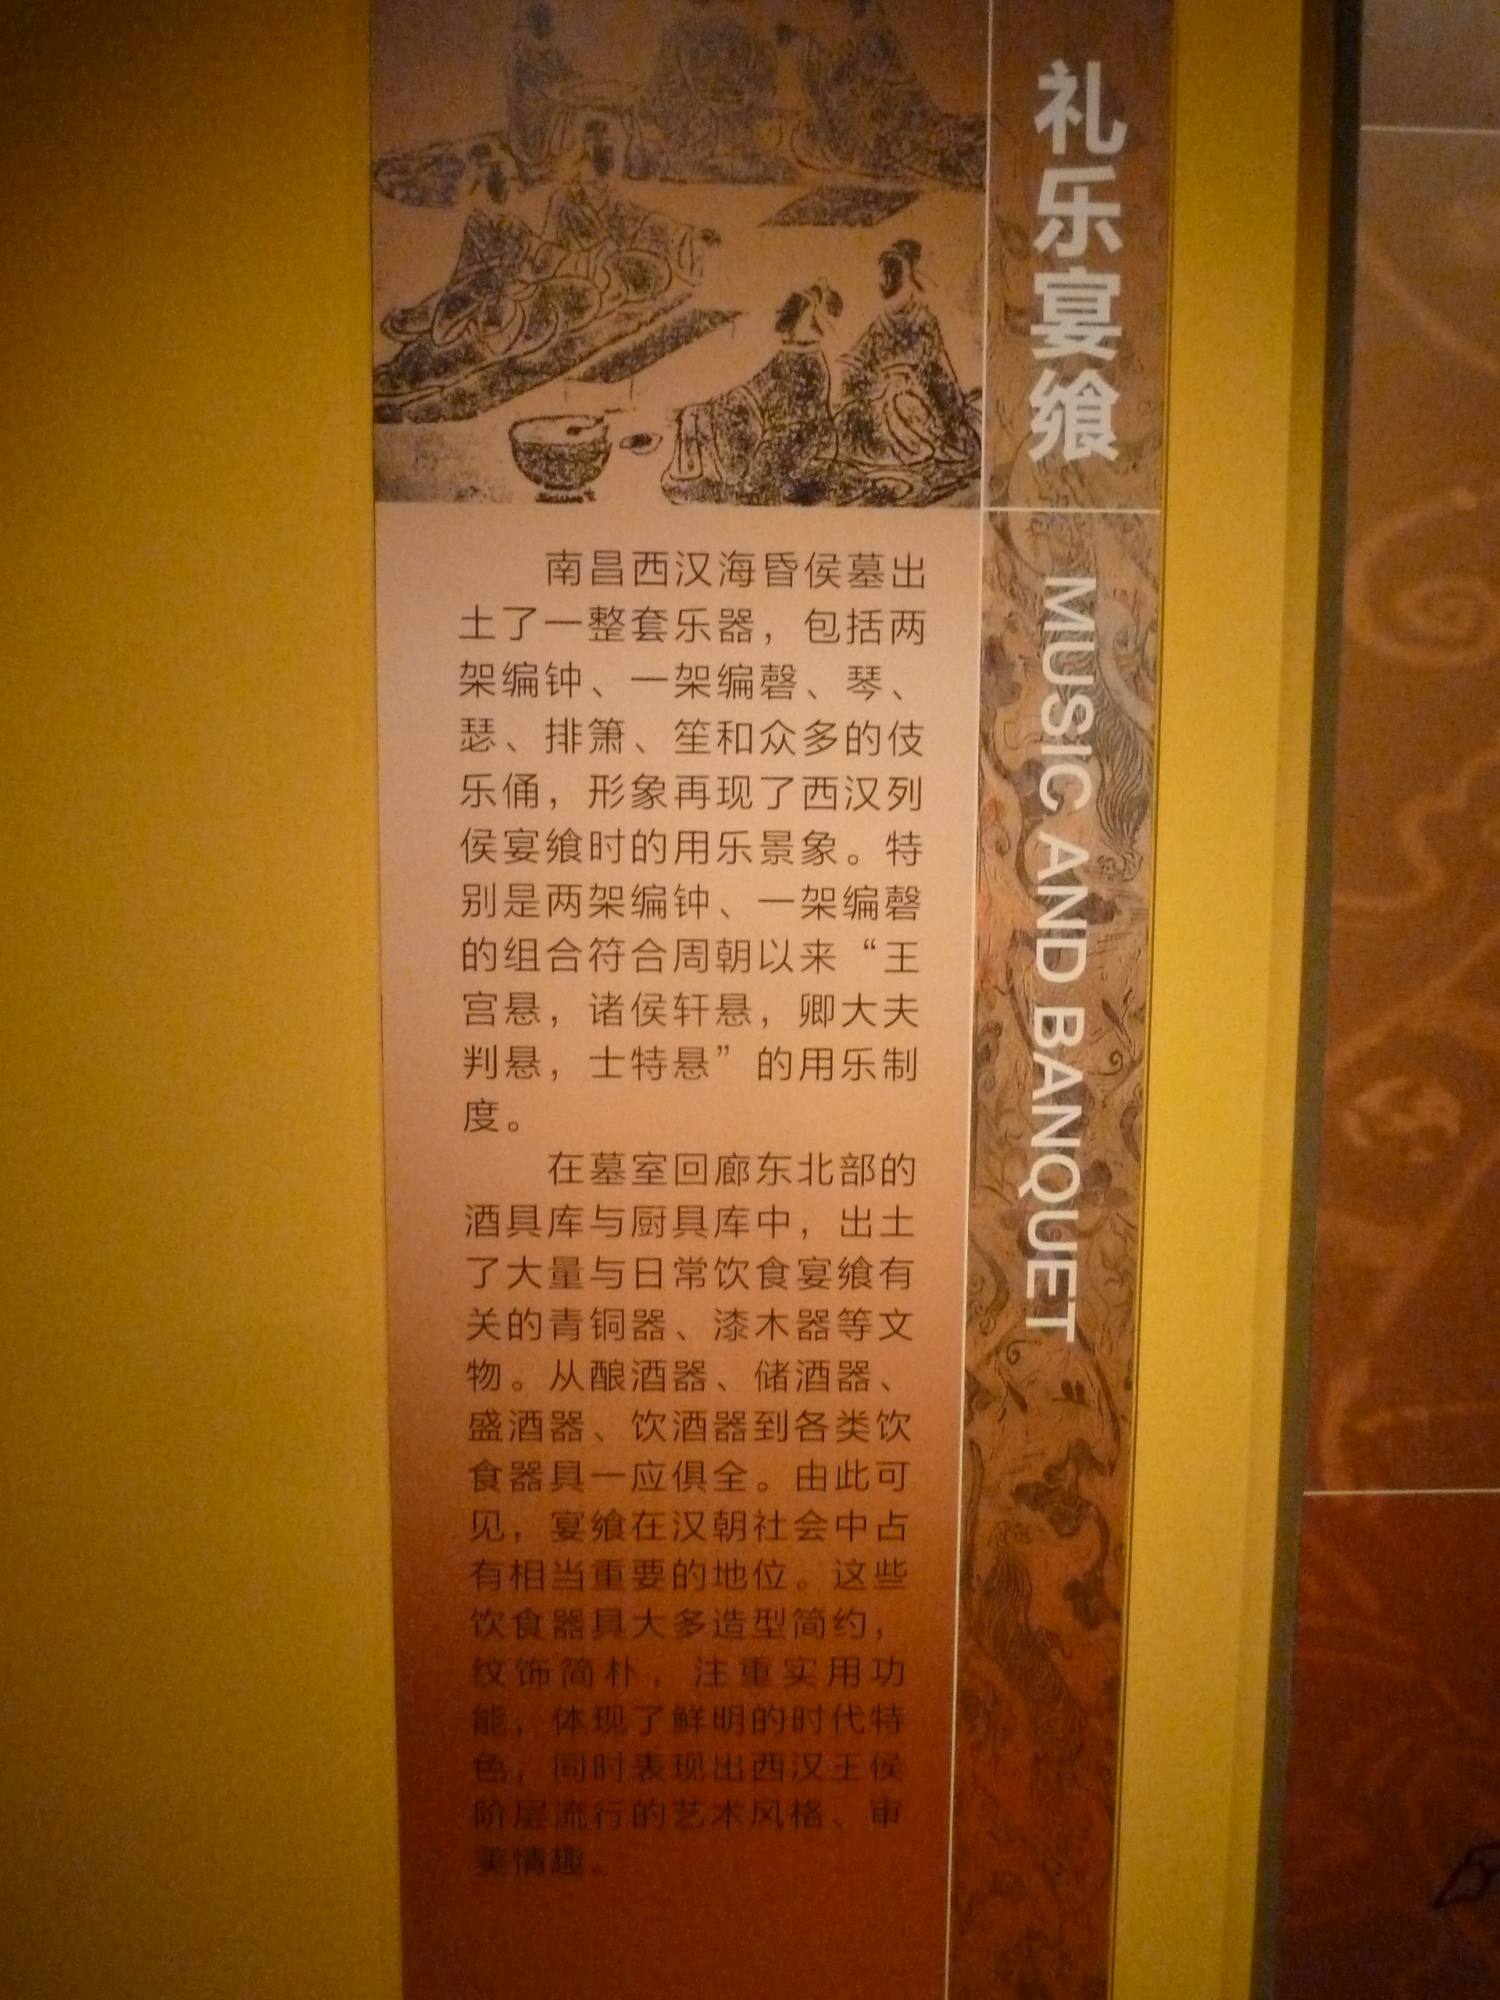 礼乐宴飨
MUSIC AND BANQUET
南昌西汉海昏侯墓出
土了一整套乐器，包括两
架编钟、一架编磬、琴、
瑟、排箫、笙和众多的伎
乐俑，形象再现了西汉列
侯宴飨时的用乐景象。特
别是两架编钟、一架编磬
的组合符合周朝以来“王
宫悬，诸侯轩悬，卿大夫
判悬，士特悬”的用乐制
度。
在墓室回廊东北部的
酒具库与厨具库中，出土
了大量与日常饮食宴飨有
关的青铜器、漆木器等文
物。从酿酒器、储酒器、
盛酒器、饮酒器到各类饮
食器具一应俱全。由此可
见，宴飨在汉朝社会中占
有相当重要的地位。这些
饮食器具大多造型简约，
纹饰简朴，注重实用功
能，体现了鲜明的时代特
色，同时表现出西汉王侯
阶层流行的艺术风格、审
美情趣。